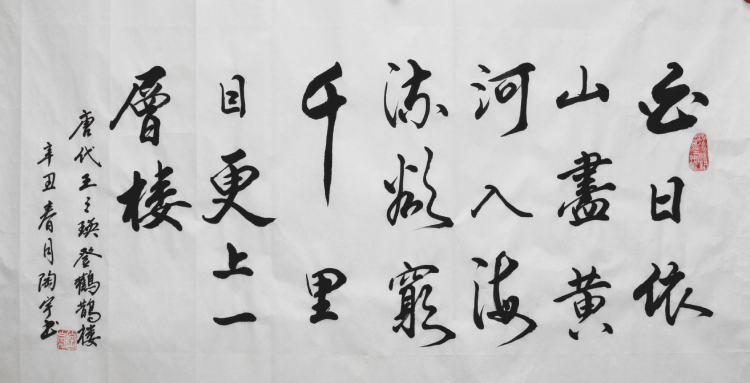 白日依
山盡黄
河入海
流欲窮
千里
目更上一
層楼
唐代王之瑛登鶴鵲楼
辛丑春月陶宇书